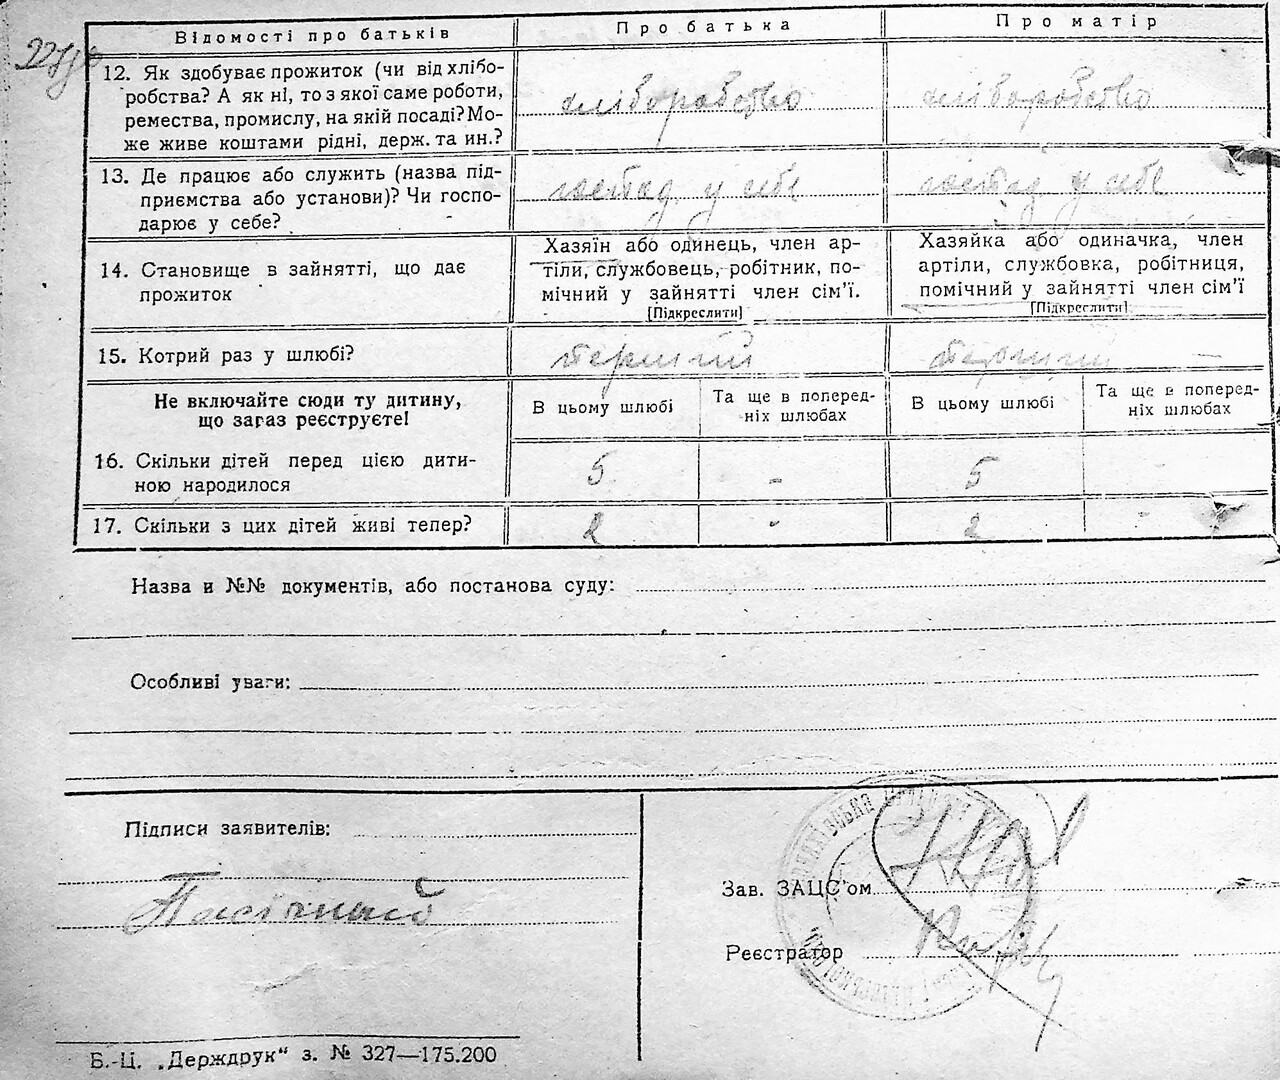 Відомості про батьків
Про батька
Про матір
12. Як здобуває прожиток (чи від хлібо-
робства? А як ні, то з якої саме роботи,
ремества, промислу, на якій посаді? Мо-
же живе коштами рідні, держ. та ин.?
хліборобство
хліборобство
13. Де працює або служить (назва під-
приємства або установи)? Чи госпо-
дарює у себе?
господ у себе
господ у себе
14. Становище в зайнятті, що дає
прожиток
Хазяїн або одинець, член ар-
тіли, службовець, робітник, по-
мічний у зайнятті член сім'ї.
[Підкреслити]
Хазяйка або одиначка, член
артіли, службовка, робітниця,
помічний у зайнятті член сім'ї
[Підкреслити]
15. Котрий раз у шлюбі?
перший
перший
Не включайте сюди ту дитину,
що зараз реєструєте!
В цьому шлюбі
Та ще в поперед-
ніх шлюбах
В цьому шлюбі
Та ще в поперед-
ніх шлюбах
16. Скільки дітей перед цією дити-
ною народилося
5
-
5
-
17. Скільки з цих дітей живі тепер?
2
-
2
-
Назва и №№ документів, або постанова суду:
Особливі уваги:
Підписи заявителів:
Пасічный
Зав. ЗАЦС'ом
Реєстратор
Б.-Ц. „Держдрук“ з. № 327—175.200